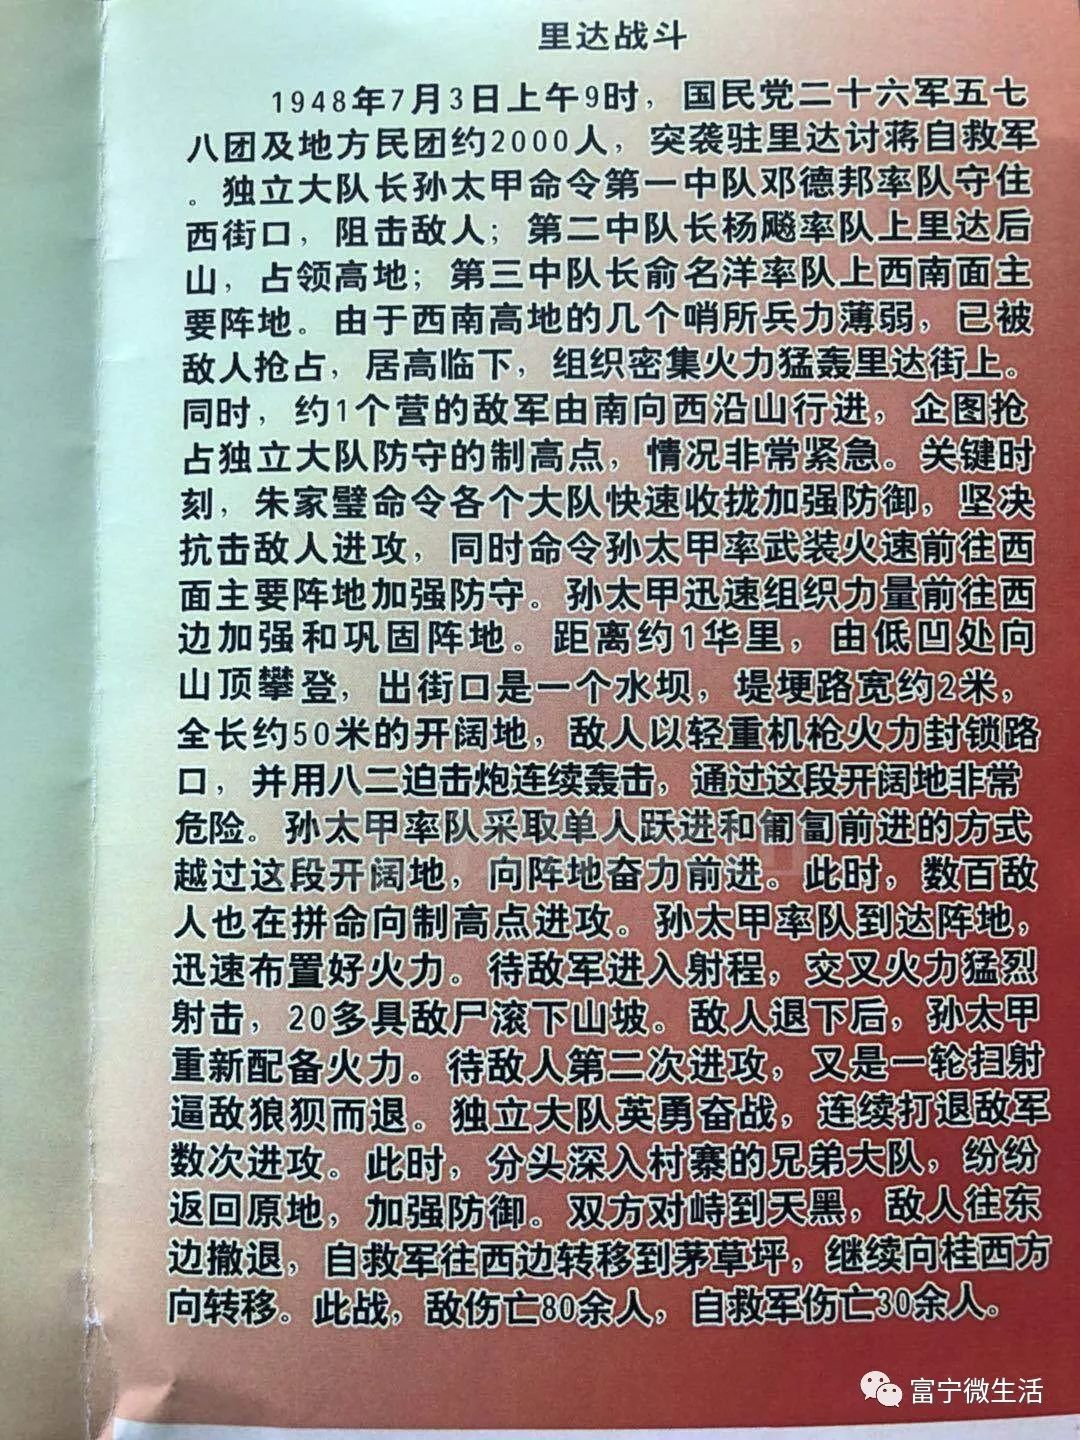 里达战斗
1948年7月3日上午9时，国民党二十六军五七
八团及地方民团约2000人，突袭驻里达讨蒋自救军
。独立大队长孙太甲命令第一中队邓德邦率队守住
西街口，阻击敌人；第二中队长杨飚率队上里达后
山，占领高地；第三中队长俞名洋率队上西南面主
要阵地。由于西南高地的几个哨所兵力薄弱，已被
敌人抢占，居高临下，组织密集火力猛轰里达街上。
同时，约1个营的敌军由南向西沿山行进，企图抢
占独立大队防守的制高点，情况非常紧急。关键时
刻，朱家璧命令各个大队快速收拢加强防御，坚决
抗击敌人进攻，同时命令孙太甲率武装火速前往西
面主要阵地加强防守。孙太甲迅速组织力量前往西
边加强和巩固阵地。距离约1华里，由低凹处向
山顶攀登，出街口是一个水坝，堤埂路宽约2米，
全长约50米的开阔地，敌人以轻重机枪火力封锁路
口，并用八二迫击炮连续轰击，通过这段开阔地非常
危险。孙太甲率队采取单人跃进和匍匐前进的方式
越过这段开阔地，向阵地奋力前进。此时，数百敌
人也在拼命向制高点进攻。孙太甲率队到达阵地，
迅速布置好火力。待敌军进入射程，交叉火力猛烈
射击，20多具敌尸滚下山坡。敌人退下后，孙太甲
重新配备火力。待敌人第二次进攻，又是一轮扫射
逼敌狼狈而退。独立大队英勇奋战，连续打退敌军
数次进攻。此时，分头深入村寨的兄弟大队，纷纷
返回原地，加强防御。双方对峙到天黑，敌人往东
边撤退，自救军往西边转移到茅草坪，继续向桂西方
向转移。此战，敌伤亡80余人，自救军伤亡30余人。
富宁微生活